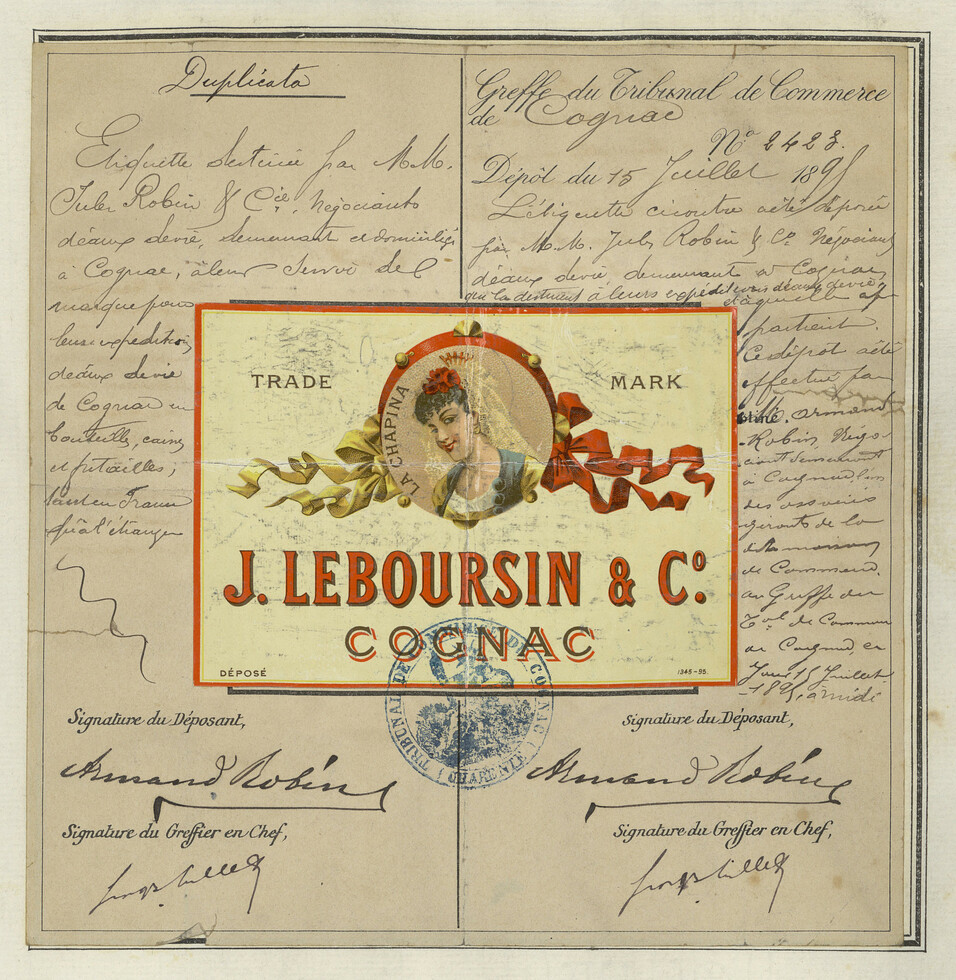 Duplicata
Etiquette destinée par M.M.
Jules Robin & Cie, Négociants
d'eaux de vie, demeurant et domiciliés
à Cognac, à leur servir de
marque pour
leurs expéditions
d'eaux de vie
de Cognac en
bouteilles, caisses
et futailles;
tant en France
qu'à l'étranger
Greffe du Tribunal de Commerce
de Cognac
No 2423.
Dépôt du 15 Juillet 1895
L'étiquette ci contre a été déposée
par M.M. Jules Robin & Co Négociants
d'eaux de vie, demeurant à Cognac,
qui la destinent à leurs expéditions d'eaux de vie
partient.
Ce dépôt a été
effectué par
M. Armand
Robin, Négo-
ciant demeurant
à Cognac l'un
des associés
gérants de la
dite maison
de Commerce.
au Greffe du
Tal de Commerce
de Cognac ce
Jour 15 Juillet
1895, à midi
TRADE MARK
LA CHAPINA
J. LEBOURSIN & Co.
COGNAC
DÉPOSÉ
1345-95.
TRIBUNAL DE COMMERCE DE COGNAC (CHARENTE)
Signature du Déposant,
Armand Robin
Signature du Greffier en Chef,
Signature du Déposant,
Armand Robin
Signature du Greffier en Chef,